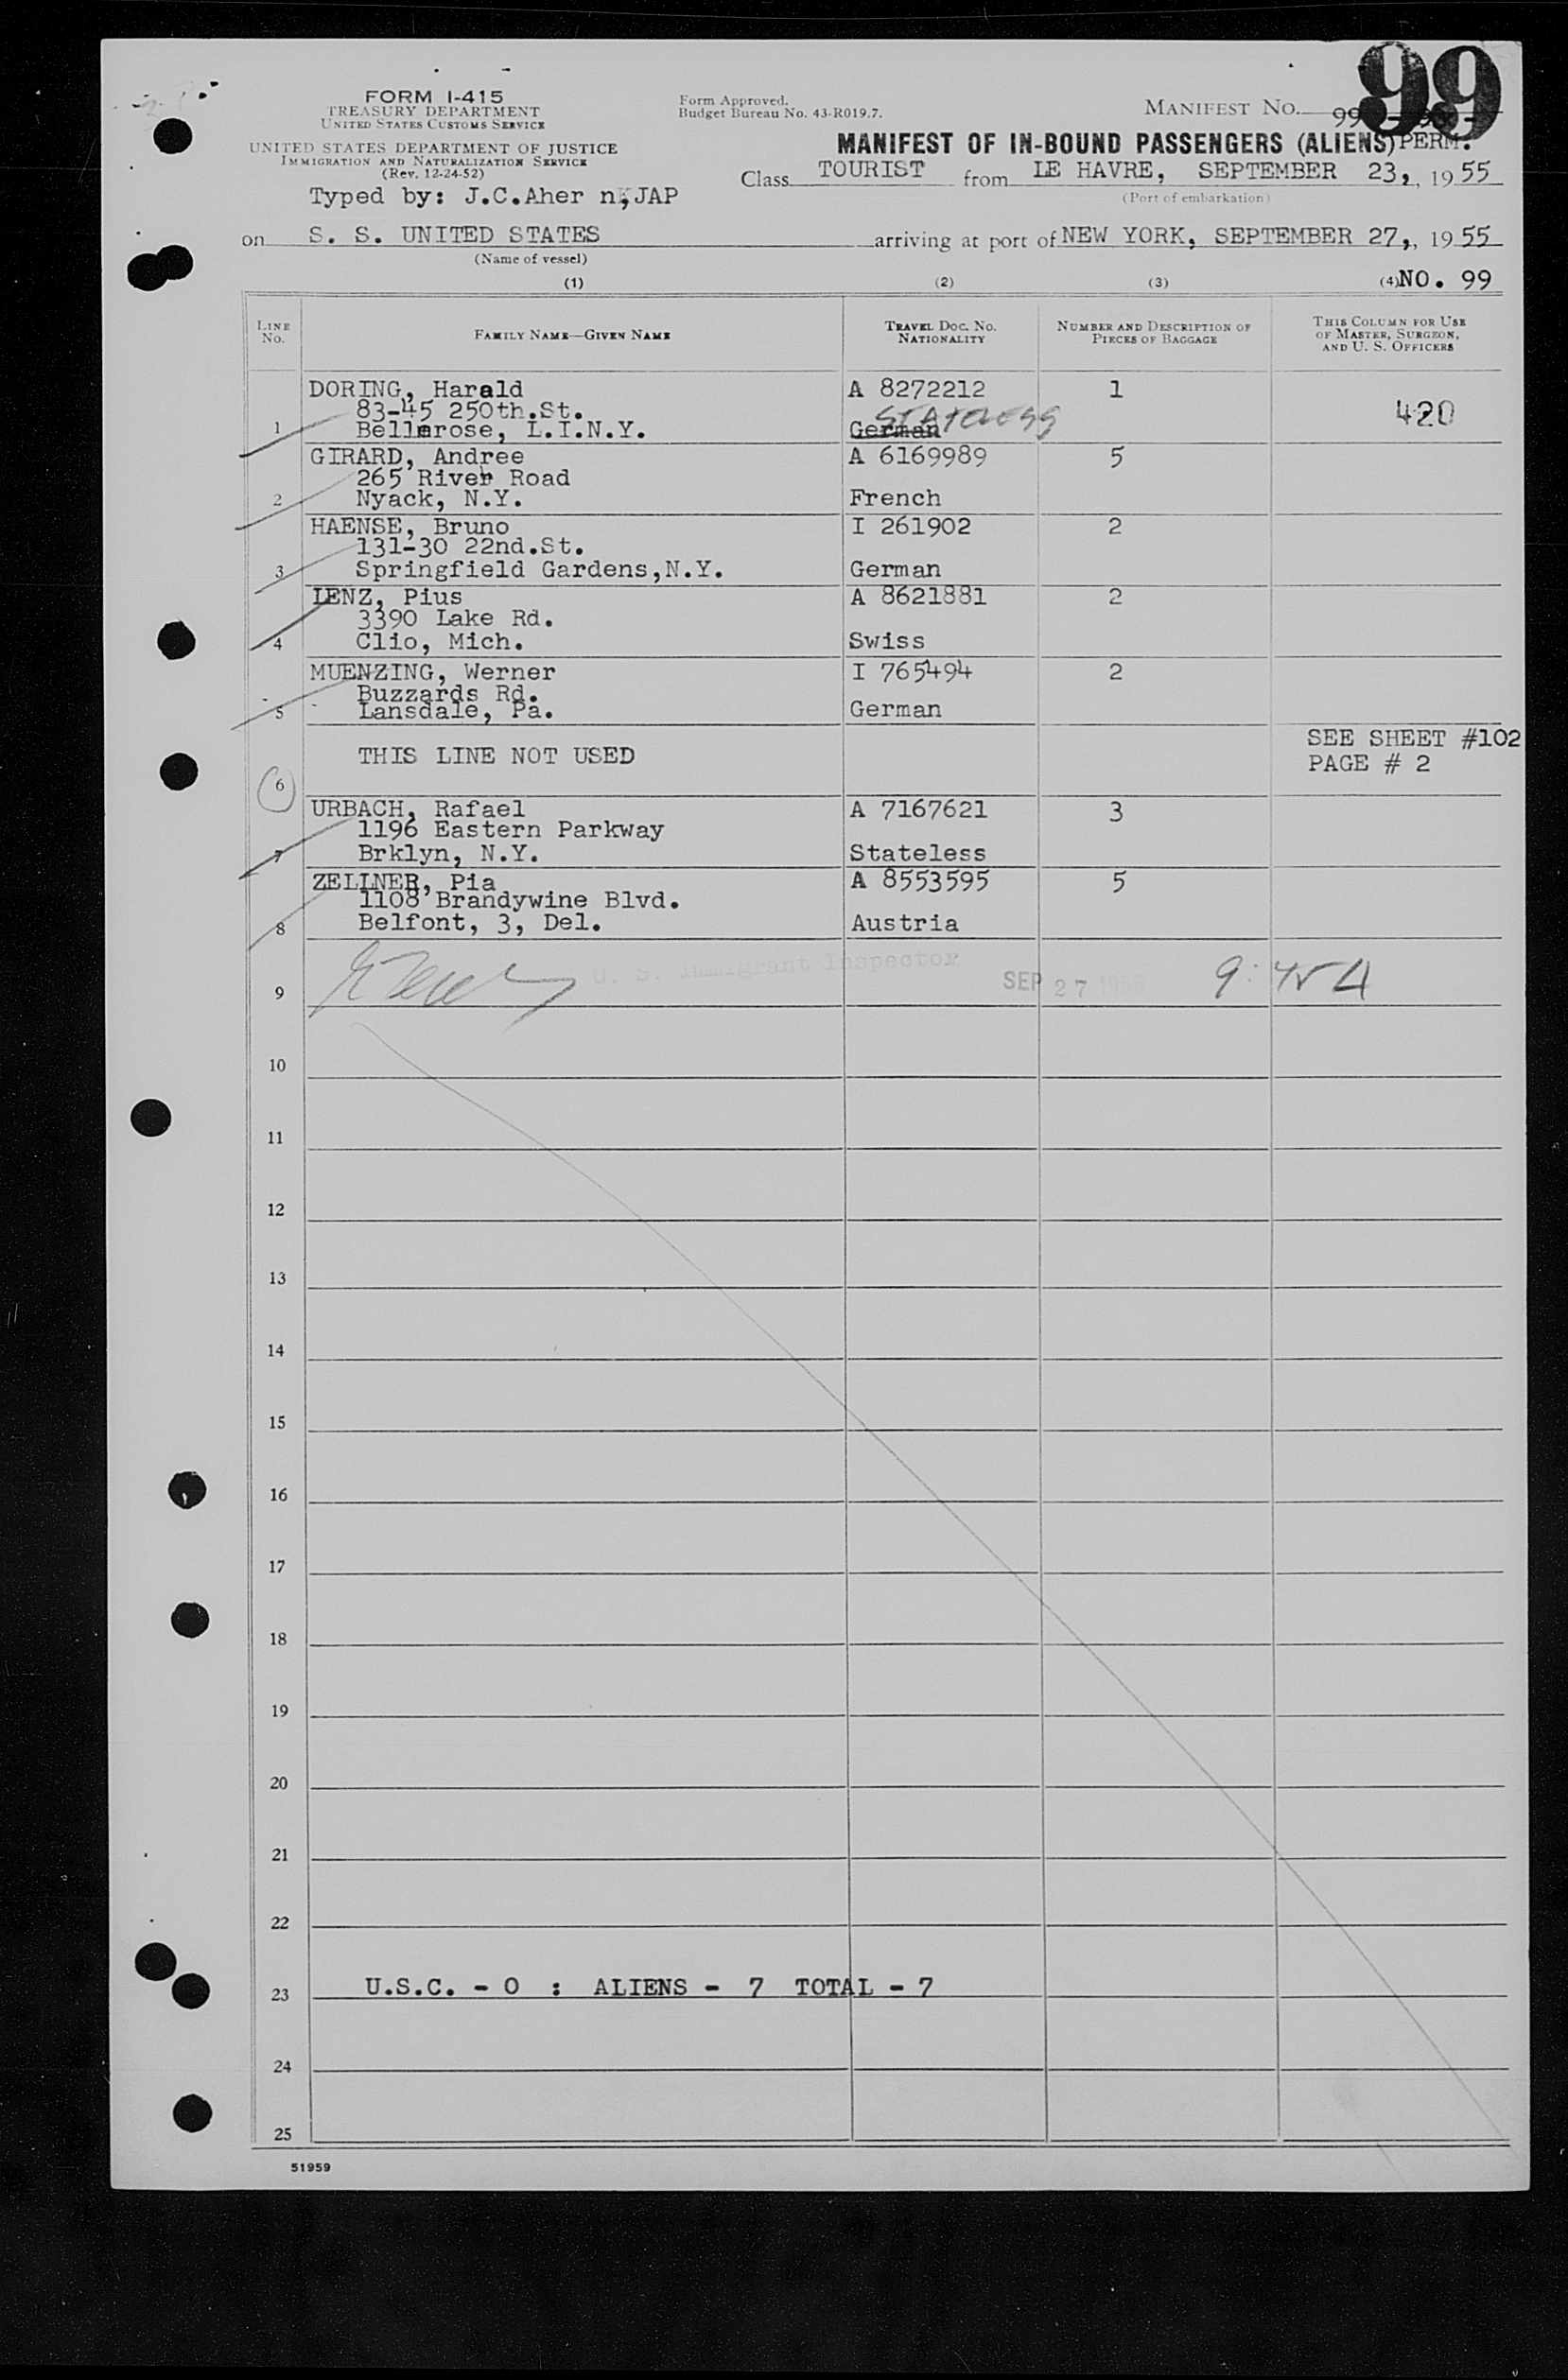 99
FORM I-415
TREASURY DEPARTMENT
UNITED STATES CUSTOMS SERVICE
UNITED STATES DEPARTMENT OF JUSTICE
IMMIGRATION AND NATURALIZATION SERVICE
(Rev. 12-24-52)
Typed by: J.C.Aher n;JAP
Form Approved.
Budget Bureau No. 43-R019.7.
MANIFEST NO. 99
MANIFEST OF IN-BOUND PASSENGERS (ALIENS) PERM.
Class TOURIST from LE HAVRE, SEPTEMBER 23,, 1955
(Port of embarkation)
on S. S. UNITED STATES arriving at port of NEW YORK, SEPTEMBER 27,, 1955
(Name of vessel)
(1) (2) (3) (4) NO. 99
LINE NO. FAMILY NAME—GIVEN NAME TRAVEL DOC. NO. NATIONALITY NUMBER AND DESCRIPTION OF PIECES OF BAGGAGE THIS COLUMN FOR USE OF MASTER, SURGEON, AND U. S. OFFICERS
DORING, Harald A 8272212 1
83-45 250th.St. STATELESS 420
1 Bellmrose, L.I.N.Y. German
GIRARD, Andree A 6169989 5
265 River Road
2 Nyack, N.Y. French
HAENSE, Bruno I 261902 2
131-30 22nd.St.
3 Springfield Gardens,N.Y. German
LENZ, Pius A 8621881 2
3390 Lake Rd.
4 Clio, Mich. Swiss
MUENZING, Werner I 765494 2
Buzzards Rd.
5 Lansdale, Pa. German
SEE SHEET #102
THIS LINE NOT USED PAGE # 2
6
URBACH, Rafael A 7167621 3
1196 Eastern Parkway
7 Brklyn, N.Y. Stateless
ZELLNER, Pia A 8553595 5
1108 Brandywine Blvd.
8 Belfont, 3, Del. Austria
U. S. Immigrant Inspector SEP 27 1955 9:45 A
9
10
11
12
13
14
15
16
17
18
19
20
21
22
23 U.S.C. - 0 : ALIENS - 7 TOTAL - 7
24
25
51959